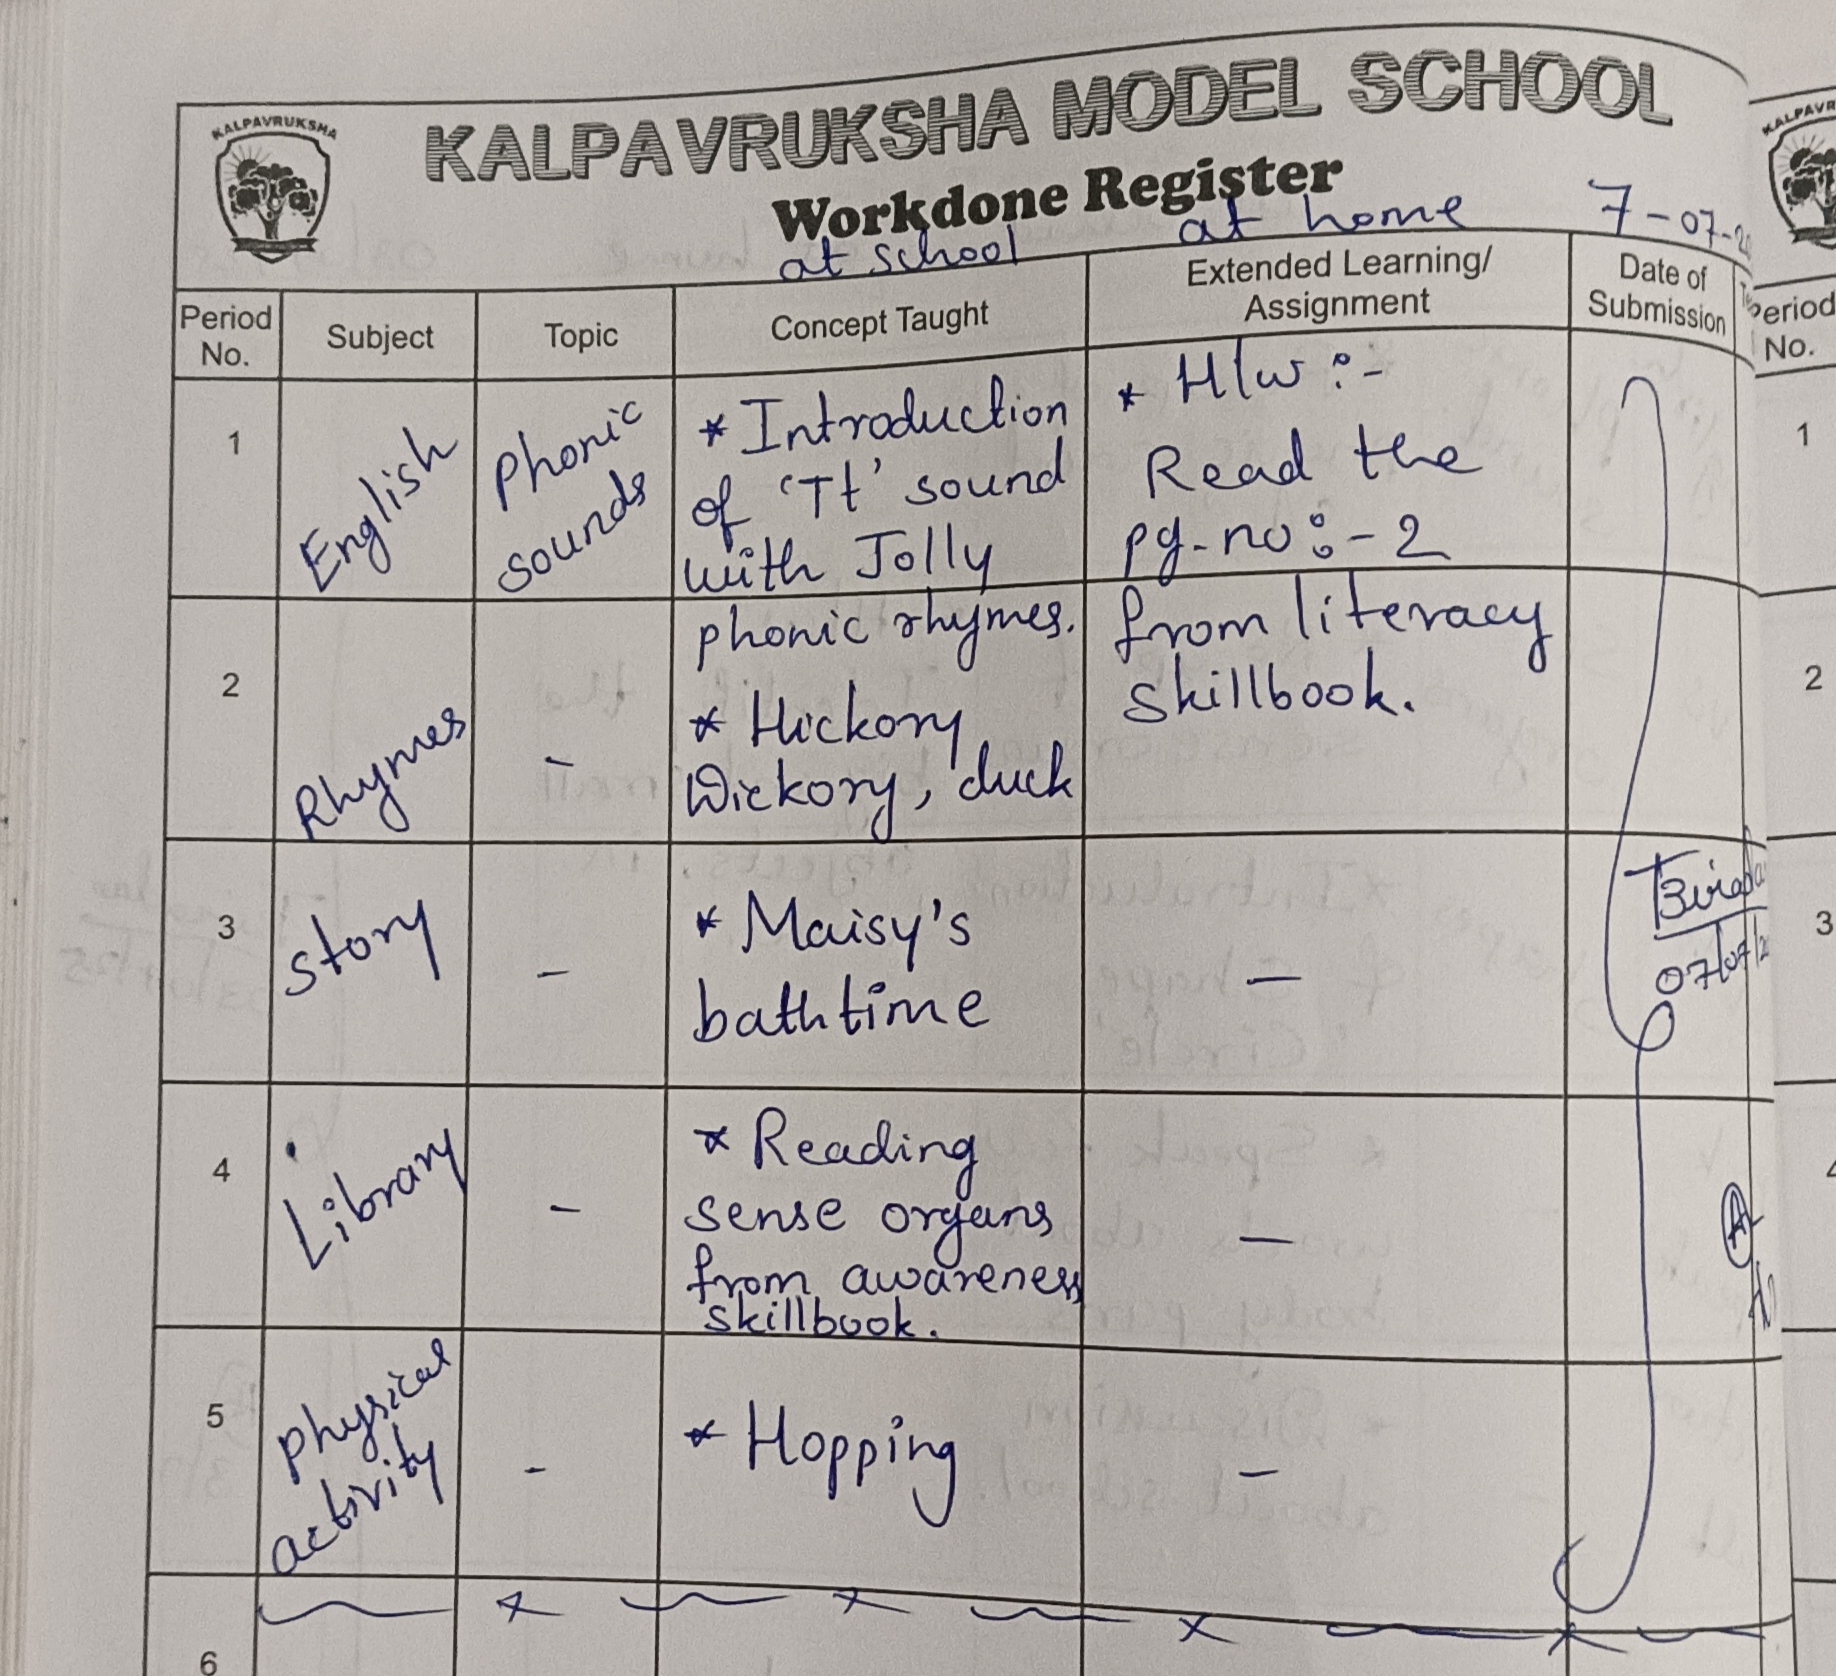 KALPAVRUKSHA
KALPAVRUKSHA MODEL SCHOOL
Workdone Register
at school
at home
7-07-
Period No.
Subject
Topic
Concept Taught
Extended Learning/
Assignment
Date of
Submission
1
English
Phonic
sounds
* Introduction
of 'Tt' sound
with Jolly
phonic rhymes.
* H/w :-
Read the
pg.no:-2
from literacy
skillbook.
2
Rhymes
-
* Hickory,
Dickory, duck
3
Story
-
* Maisy's
bathtime
-
07/07/2
4
Library
-
* Reading
sense organs
from awareness
skillbook.
-
5
Physical
activity
-
* Hopping
-
6
Period
No.
1
2
3